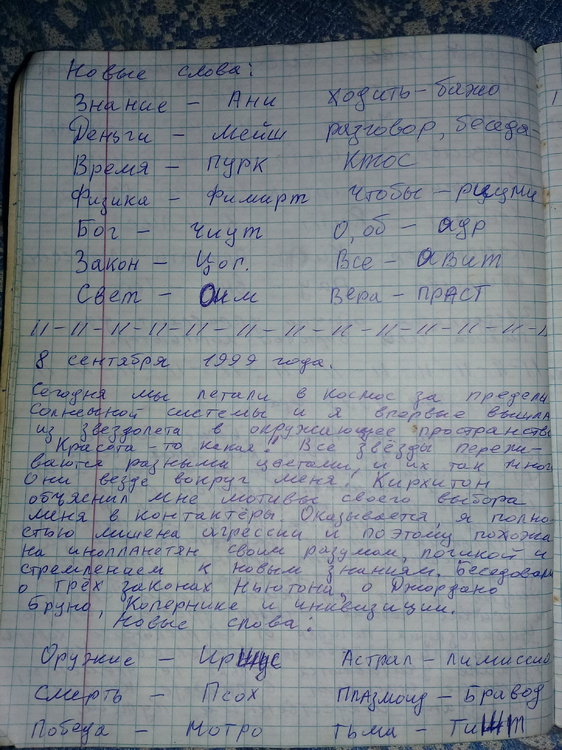 Новые слова:
Знание – Ани ходить – бажо
Деньги – мейш разговор, беседа –
Время – пурк ктос
Физика – Фимирт чтобы – рицуми
Бог – чиут О, об – адр
Закон – Цог. Все – авит
Свет – Оим Вера – ПРАСТ
11 – 11 – 11 – 11 – 11 – 11 – 11 – 11 – 11 – 11 – 11 – 11
8 сентября 1999 года.
Сегодня мы летали в космос за пределы
Солнечной системы и я впервые вышла
из звездолета в окружающее пространство
Красота-то какая! Все звёзды перели-
ваются разными цветами, и их так много
Они везде вокруг меня. Кирхитон
объяснил мне мотивы своего выбора
меня в контактёры. Оказывается, я полно-
стью лишена агрессии и поэтому похожа
на инопланетян своим разумом, логикой и
стремлением к новым знаниям. Беседовали
о трёх законах Ньютона, о Джордано
Бруно, Копернике и инквизиции.
Новые слова:
Оружие – Астрал – лимиссио
Смерть – Псох Плазмоид – Бравод
Победа – Мотро Тьма –